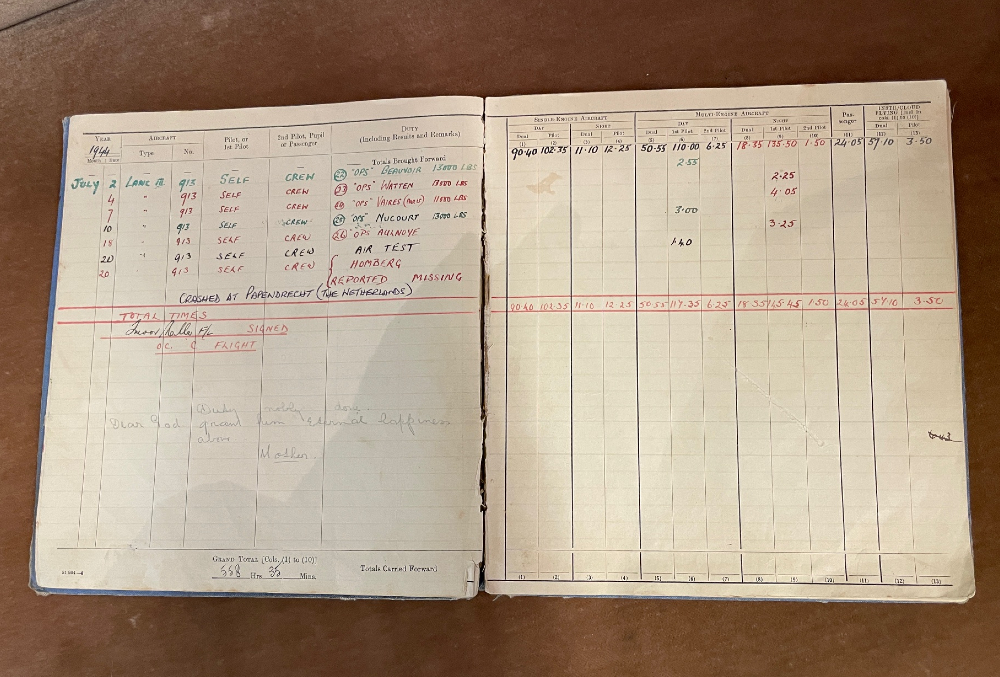 YEAR AIRCRAFT PILOT, OR 1ST PILOT 2ND PILOT, PUPIL OR PASSENGER DUTY (INCLUDING RESULTS AND REMARKS)
1944
MONTH DATE Type No.
— — — — — Totals Brought Forward
JULY 2 LANC III 913 SELF CREW 22 "OPS" BEAUVOIR 13000 LBS
4 " 913 SELF CREW 23 "OPS" WATTEN 13000 LBS
7 " 913 SELF CREW "OPS" VAIRES 11000 LBS
10 " 913 SELF CREW 25 "OPS" NUCOURT 13000 LBS
18 " 913 SELF CREW 26 "OPS" AULNOYE
20 " 913 SELF CREW AIR TEST
20 913 SELF CREW HOMBERG
REPORTED MISSING
CRASHED AT PAPENDRECHT (THE NETHERLANDS)
TOTAL TIMES
F/L SIGNED
O.C. C FLIGHT
Duty nobly done.
Dear God grant him eternal happiness
above
Mother.
GRAND TOTAL [Cols. (1) to (10)]
558 Hrs 35 Mins.
Totals Carried Forward
SINGLE-ENGINE AIRCRAFT MULTI-ENGINE AIRCRAFT PASSENGER INSTR/CLOUD FLYING
DAY NIGHT DAY NIGHT
Dual Pilot Dual Pilot Dual 1st Pilot 2nd Pilot Dual 1st Pilot 2nd Pilot Dual Pilot
(1) (2) (3) (4) (5) (6) (7) (8) (9) (10) (11) (12) (13)
90.40 102.35 11.10 12.25 50.55 110.00 6.25 18.35 135.50 1.50 24.05 57.10 3.50
2.55
2.25
4.05
3.00
3.25
1.40
90.40 102.35 11.10 12.25 50.55 117.35 6.25 18.35 145.45 1.50 24.05 57.10 3.50
(1) (2) (3) (4) (5) (6) (7) (8) (9) (10) (11) (12) (13)